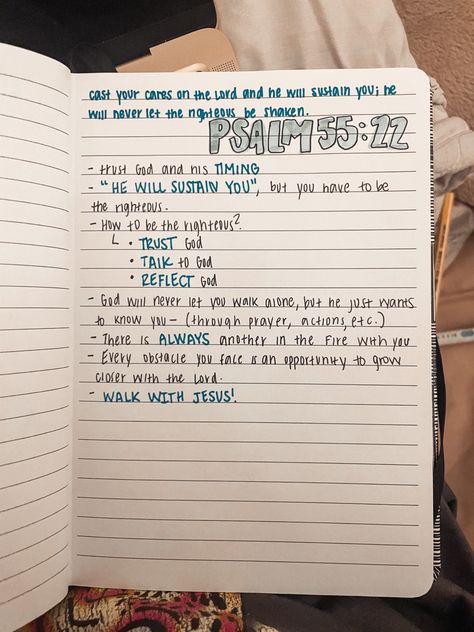 cast your cares on the Lord and he will sustain you; he
will never let the righteous be shaken.
PSALM 55:22
- trust God and his TIMING
- "HE WILL SUSTAIN YOU", but you have to be
the righteous.
- How to be the righteous?
• TRUST God
• TALK to God
• REFLECT God
- God will never let you walk alone, but he just wants
to know you - (through prayer, actions, etc.)
- There is ALWAYS another in the Fire with you
- Every obstacle you face is an opportunity to grow
closer with the Lord.
- WALK WITH JESUS!